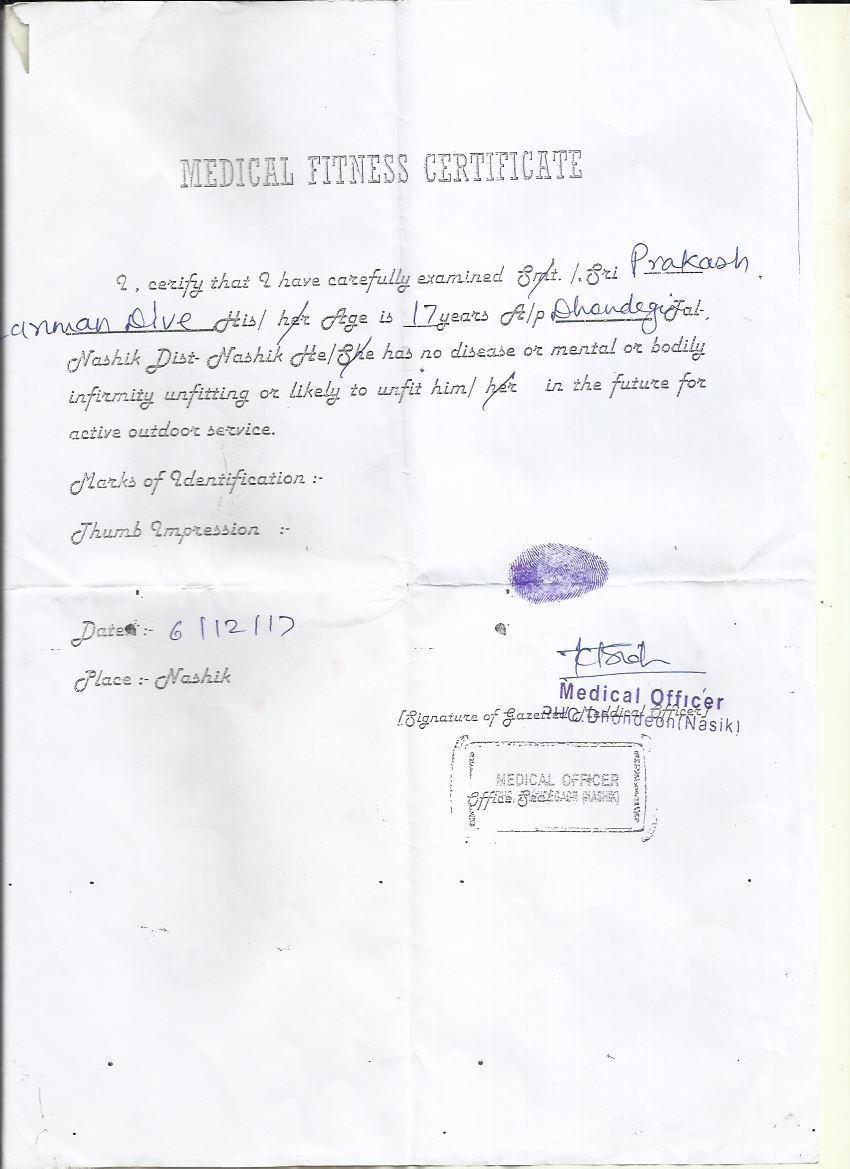 MEDICAL FITNESS CERTIFICATE
I, cerify that I have carefully examined Smt. /. Sri Prakash.
anman Dive His/ her Age is 17 years A/p Dhondegi Tal-,
Nashik Dist- Nashik He/She has no disease or mental or bodily
infirmity unfitting or likely to unfit him/ her in the future for
active outdoor service.
Marks of Identification :-
Thumb Impression :-
Dates :- 6/12/17
Place :- Nashik
Medical Officer
[Signature of Gazetted Meddical Officer]
PHC, Dhondegh (Nasik)
MEDICAL OFFICER
Office Seal
(NASHIK)